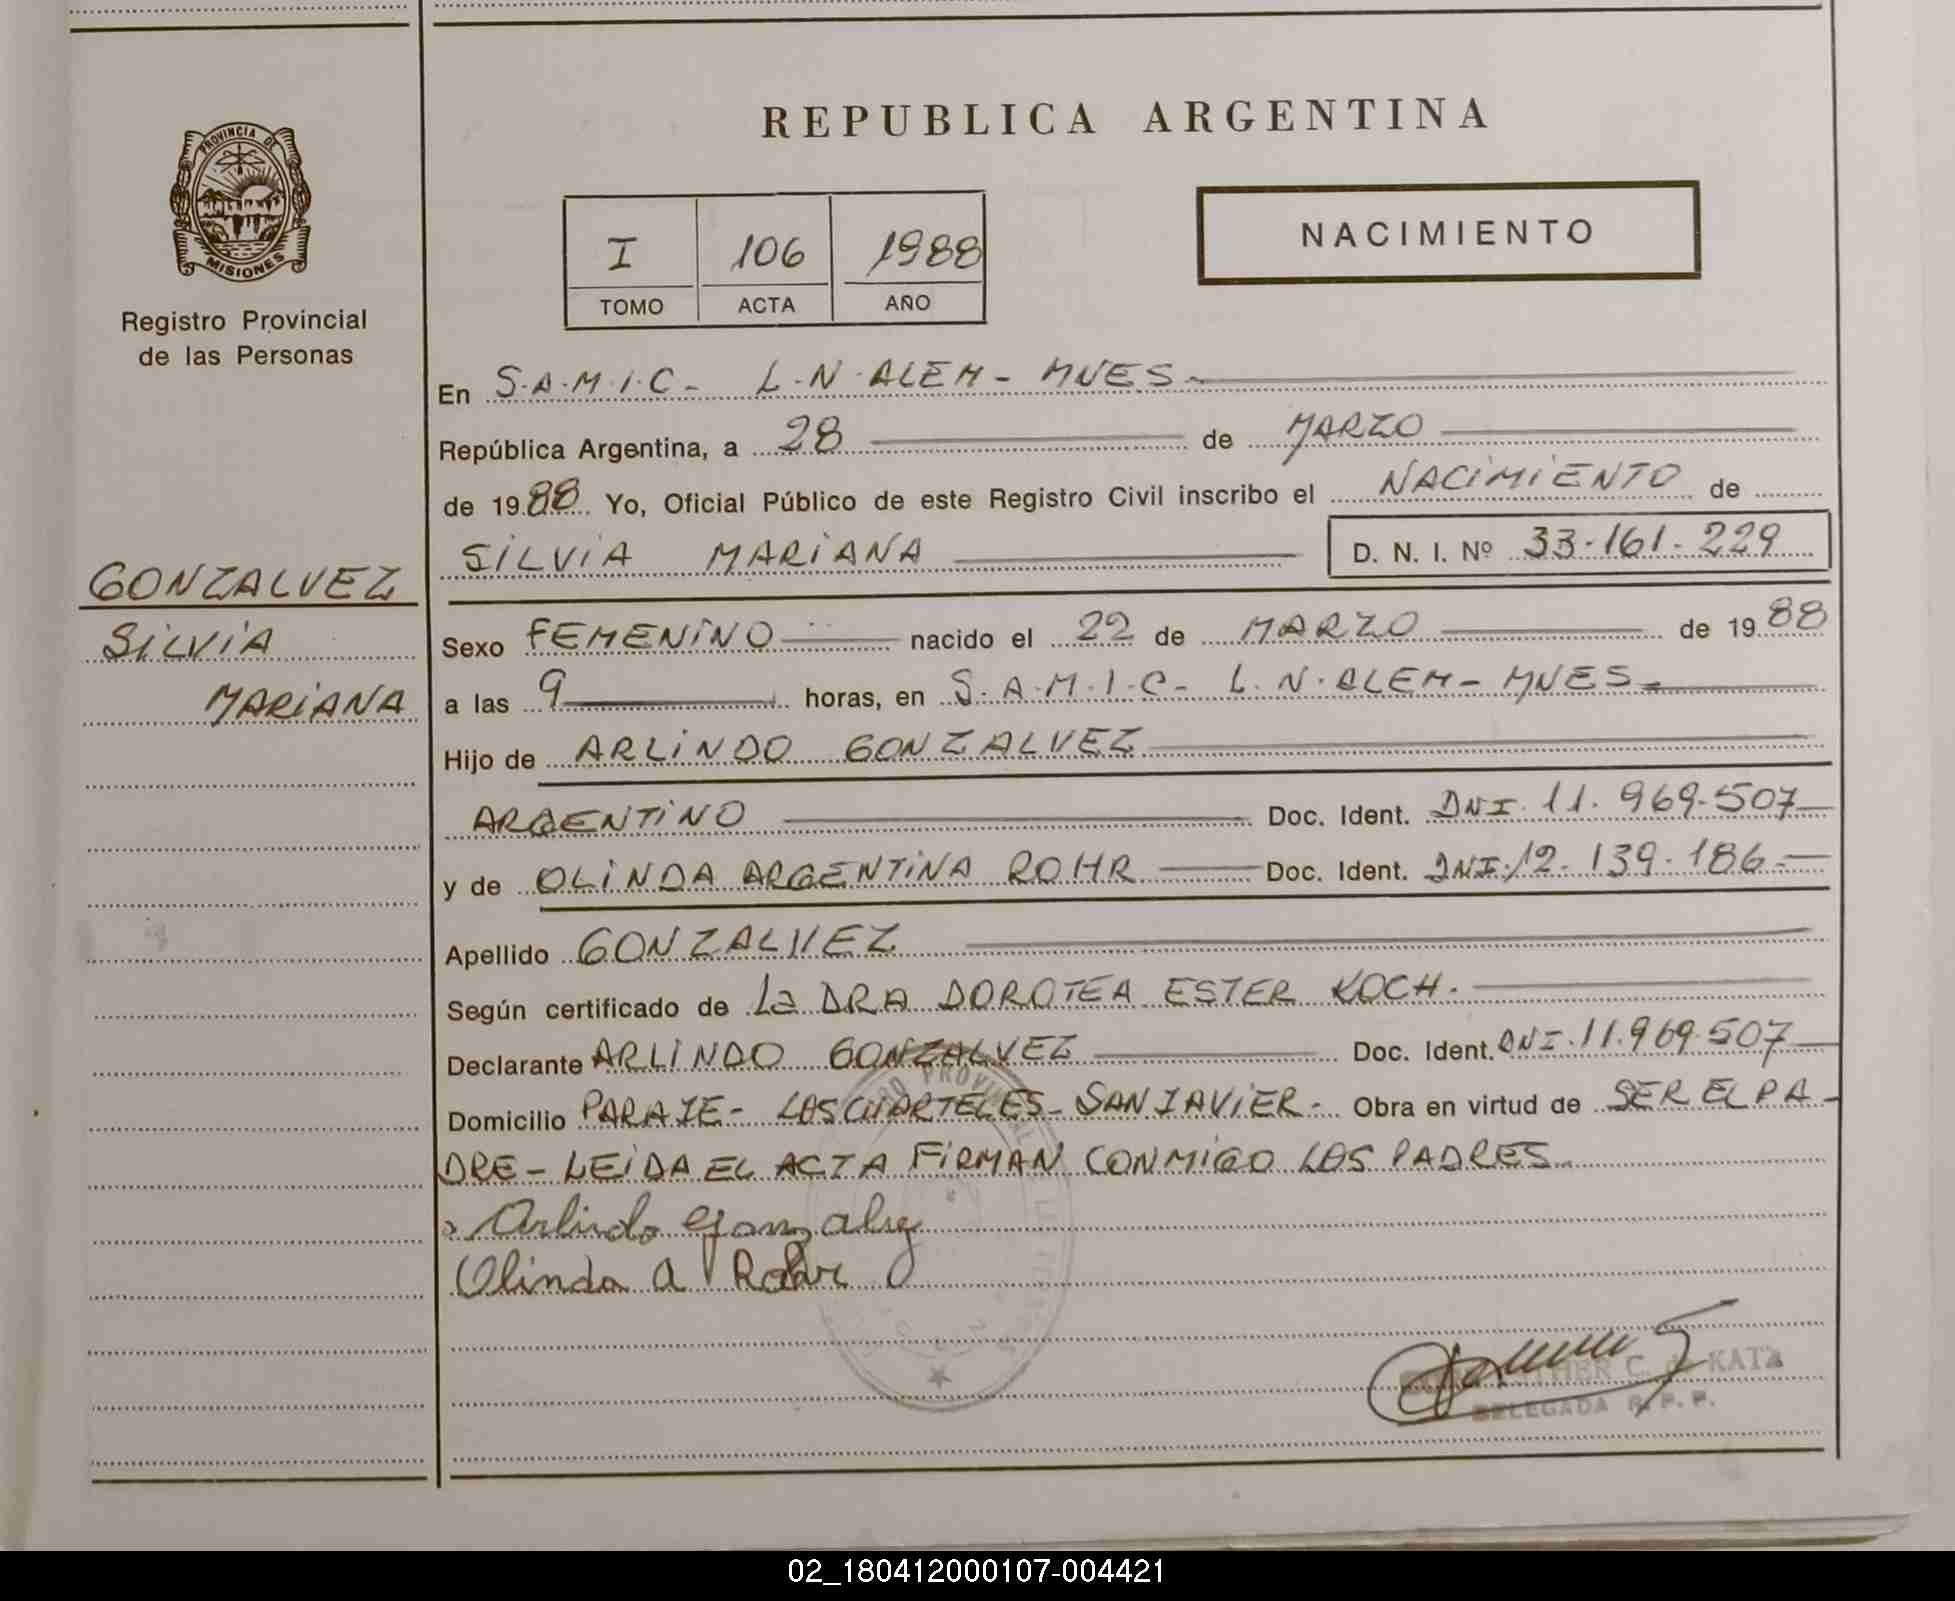 PROVINCIA DE
MISIONES
Registro Provincial
de las Personas
GONZALVEZ
SILVIA
MARIANA
REPUBLICA ARGENTINA
NACIMIENTO
I 106 1988
TOMO ACTA AÑO
En S.A.M.I.C- L.N.ALEM- MNES-
República Argentina, a 28 de MARZO
de 1988 Yo, Oficial Público de este Registro Civil inscribo el NACIMIENTO de
SILVIA MARIANA D. N. I. Nº 33.161.229
Sexo FEMENINO nacido el 22 de MARZO de 1988
a las 9 horas, en S.A.M.I.C- L.N.ALEM- MNES-
Hijo de ARLINDO GONZALVEZ
ARGENTINO Doc. Ident. DNI. 11.969.507
y de OLINDA ARGENTINA ROHR Doc. Ident. DNI. 12.139.186-
Apellido GONZALVEZ
Según certificado de La DRA DOROTEA ESTER KOCH.
Declarante ARLINDO GONZALVEZ Doc. Ident. DNI. 11.969.507
Domicilio PARAJE- LOS CUARTELES- SAN JAVIER- Obra en virtud de SER EL PA-
DRE- LEIDA EL ACTA FIRMAN CONMIGO LOS PADRES-
Arlindo Gonzalvez
Olinda A Rohr
C. de KATZ
DELEGADA R. P. P.
02_180412000107-004421